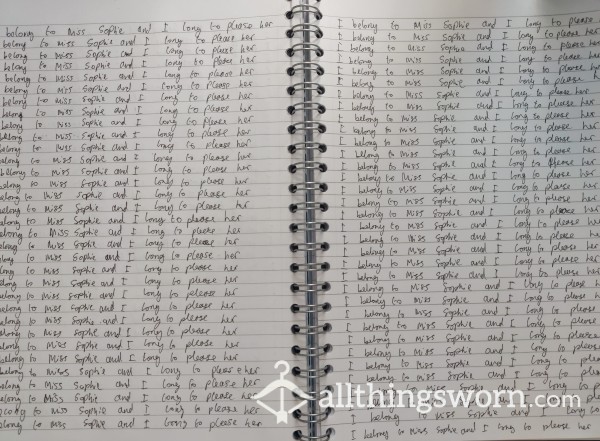 belong to Miss Sophie and I long to please her
belong to Miss Sophie and I long to please her
belong to Miss Sophie and I long to please her
belong to Miss Sophie and I long to please her
belong to Miss Sophie and I long to please her
belong to Miss Sophie and I long to please her
belong to Miss Sophie and I long to please her
belong to Miss Sophie and I long to please her
belong to Miss Sophie and I long to please her
belong to Miss Sophie and I long to please her
belong to Miss Sophie and I long to please her
belong to Miss Sophie and I long to please her
belong to Miss Sophie and I long to please her
belong to Miss Sophie and I long to please her
belong to Miss Sophie and I long to please her
belong to Miss Sophie and I long to please her
belong to Miss Sophie and I long to please her
belong to Miss Sophie and I long to please her
belong to Miss Sophie and I long to please her
to Miss Sophie and I long to please her
to Miss Sophie and I long to please her
to Miss Sophie and I long to please her
to Miss Sophie and I long to please her
to Miss Sophie and I long to please her
to Miss Sophie and I long to please her
to Miss Sophie and I long to please her
belong to Miss Sophie and I long to please her
belong to Miss Sophie and I long to please her
belong to Miss Sophie and I long to please her
belong to Miss Sophie and I long to please her
belong to Miss Sophie and I long to please her
to Miss Sophie and I long to please her
belong to Miss Sophie and I long to please her
I belong to Miss Sophie and I long to please
I belong to Miss Sophie and I long to please her
I belong to Miss Sophie and I long to please her
I belong to Miss Sophie and I long to please her
I belong to Miss Sophie and I long to please her
I belong to Miss Sophie and I long to please her
I belong to Miss Sophie and I long to please her
I belong to Miss Sophie and I long to please her
I belong to Miss Sophie and I long to please her
I belong to Miss Sophie and I long to please her
I belong to Miss Sophie and I long to please her
I belong to Miss Sophie and I long to please her
I belong to Miss Sophie and I long to please her
I belong to Miss Sophie and I long to please her
I belong to Miss Sophie and I long to please her
I belong to Miss Sophie and I long to please her
I belong to Miss Sophie and I long to please her
I belong to Miss Sophie and I long to please her
I belong to Miss Sophie and I long to please her
I belong to Miss Sophie and I long to please her
I belong to Miss Sophie and I long to please her
I belong to Miss Sophie and I long to please her
I belong to Miss Sophie and I long to please
I belong to Miss Sophie and I long to please
I belong to Miss Sophie and I long to please
I belong to Miss Sophie and I long to please
I belong to Miss Sophie and I long to please
I belong to Miss Sophie and I long to please
I belong to Miss Sophie and I long to please
I belong to Miss Sophie and I long to please
I belong to Miss Sophie and I long to
allthingsworn.com
I belong to Miss Sophie and I long to please
I belong to Miss Sophie and I long to please